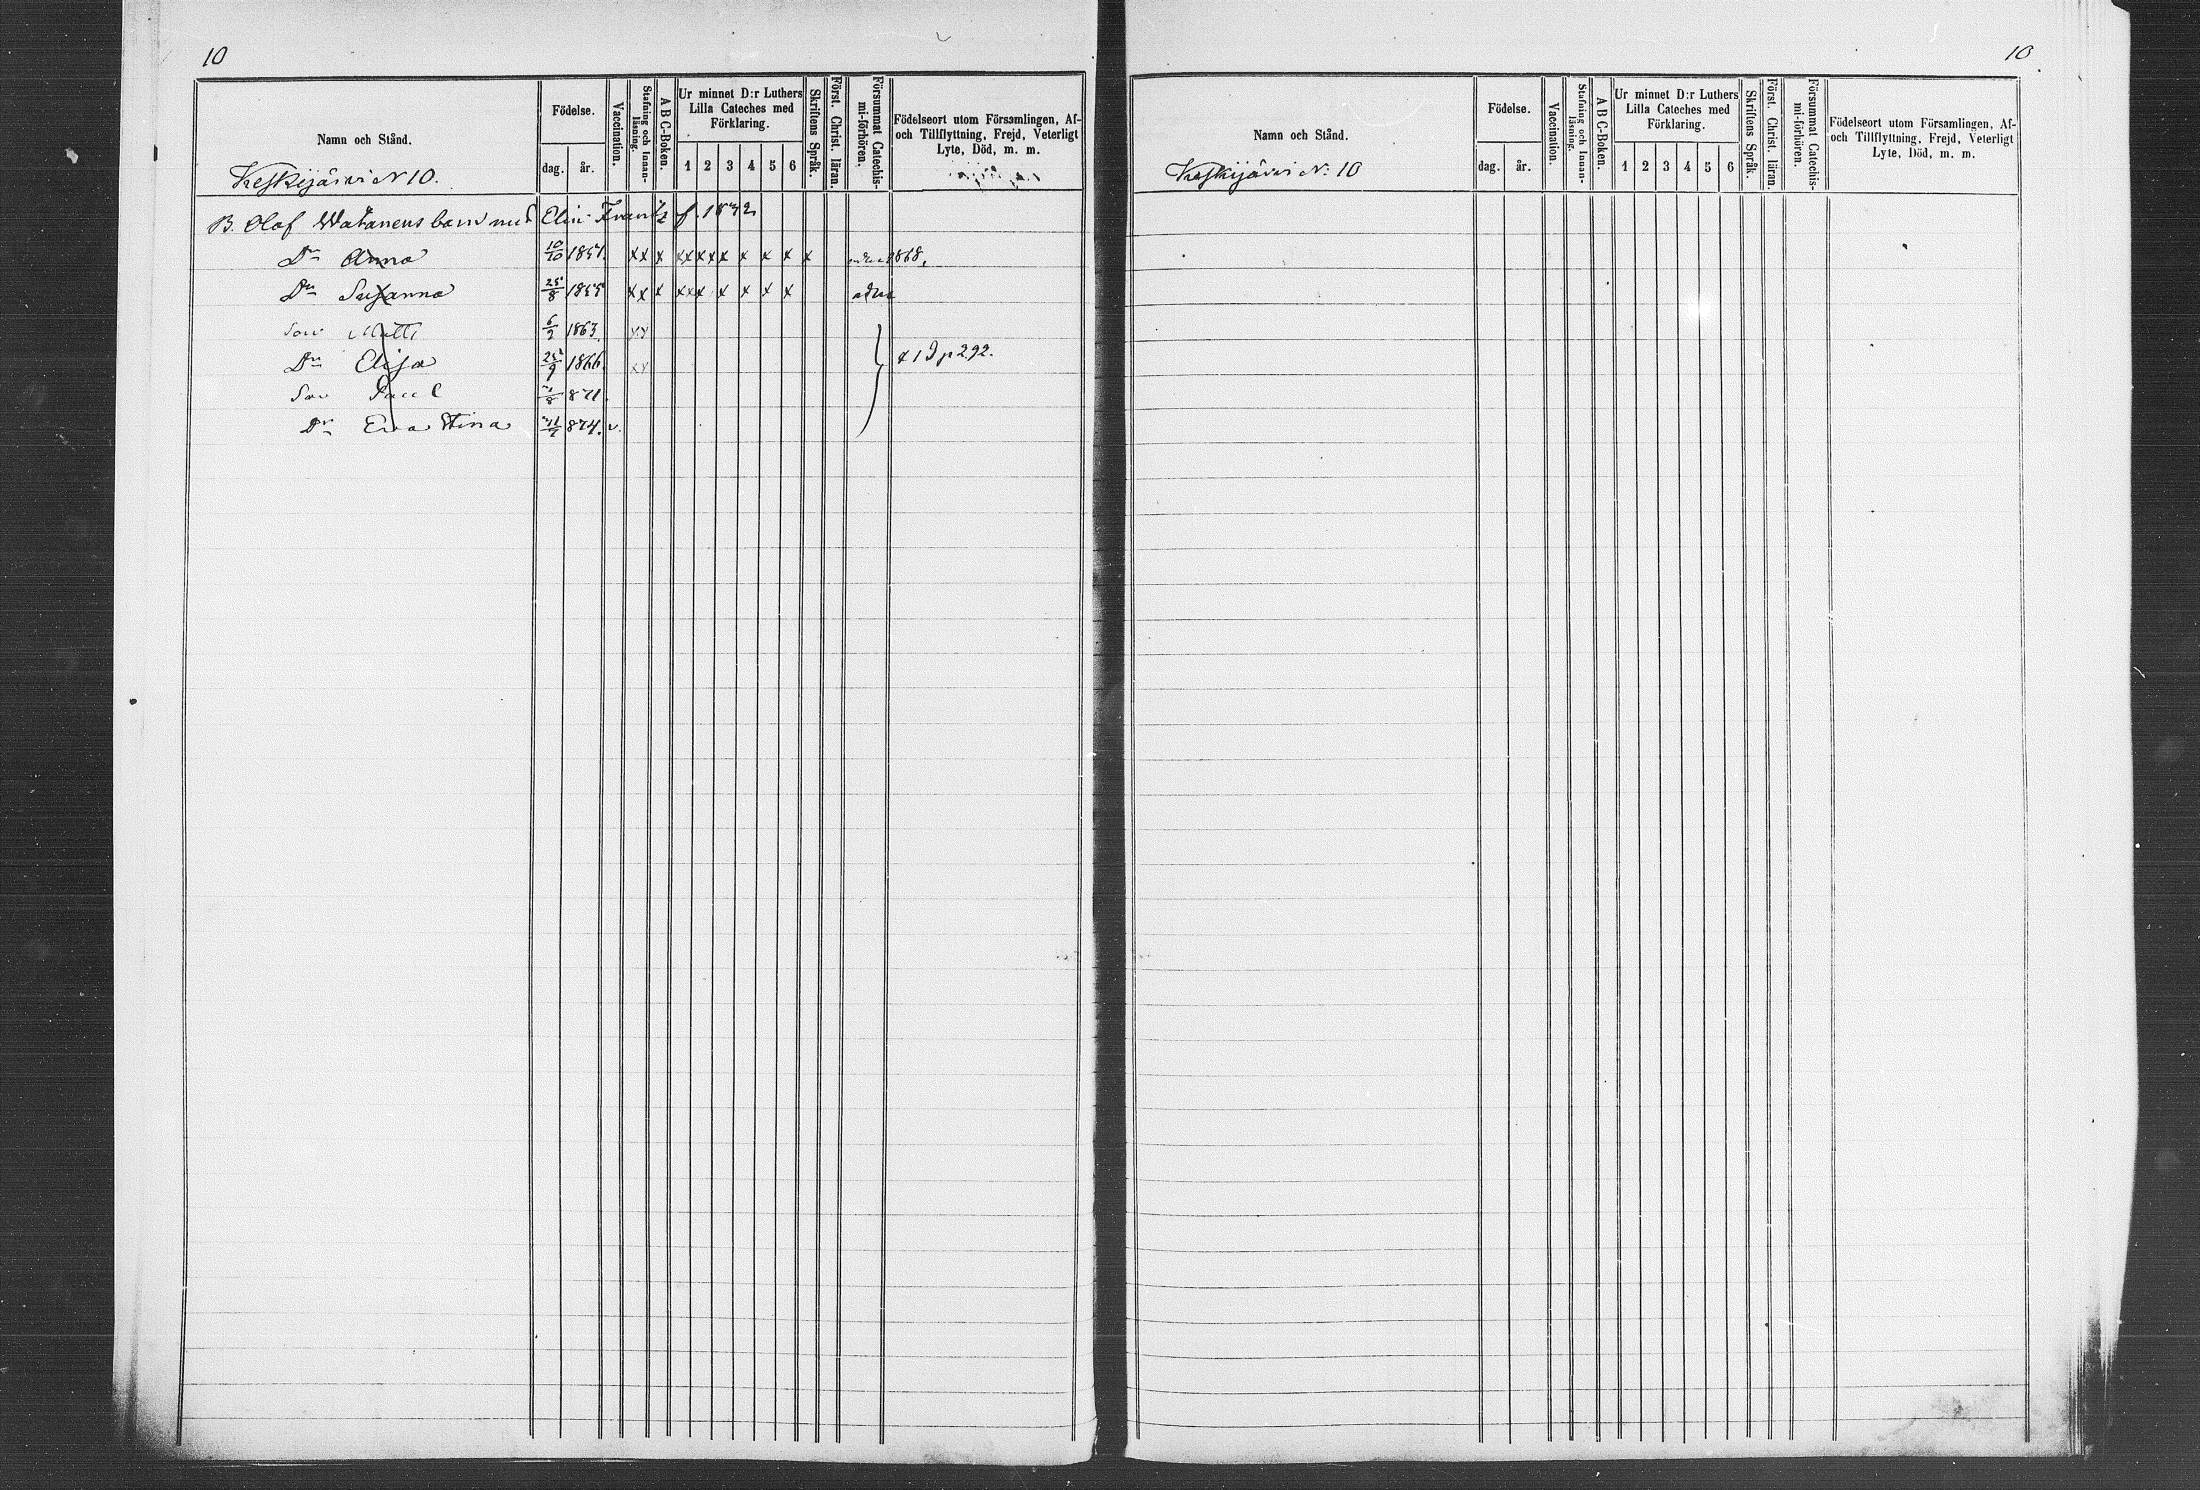 10
Namn och Stånd.
Födelse.
dag. år.
Vaccination.
Stafning och Innanläsning.
A B C-Boken.
Ur minnet D:r Luthers
Lilla Cateches med
Förklaring.
1 2 3 4 5 6
Skriftens Språk.
Först. Christ. läran.
Försummat Catechismi-förhören.
Födelseort utom Församlingen, Af-
och Tillflyttning, Frejd, Veterligt
Lyte, Död, m. m.
Keskijärvi N 10.
B. Olof Watanens barn med Elin f. 1832
Dr Anna 10/10 1851. xx x x x x x x x x 1868.
Dr Susanna 25/8 1855 xx x xxx x x x x
Son Matti 6/9 1863. xx
Dr Elisa 25/9 1866. xx p 292.
Son Paul 871.
Dr Eva Stina 874. v.
10
Namn och Stånd.
Födelse.
dag. år.
Vaccination.
Stafning och Innanläsning.
A B C-Boken.
Ur minnet D:r Luthers
Lilla Cateches med
Förklaring.
1 2 3 4 5 6
Skriftens Språk.
Först. Christ. läran.
Försummat Catechismi-förhören.
Födelseort utom Församlingen, Af-
och Tillflyttning, Frejd, Veterligt
Lyte, Död, m. m.
Keskijärvi N: 10